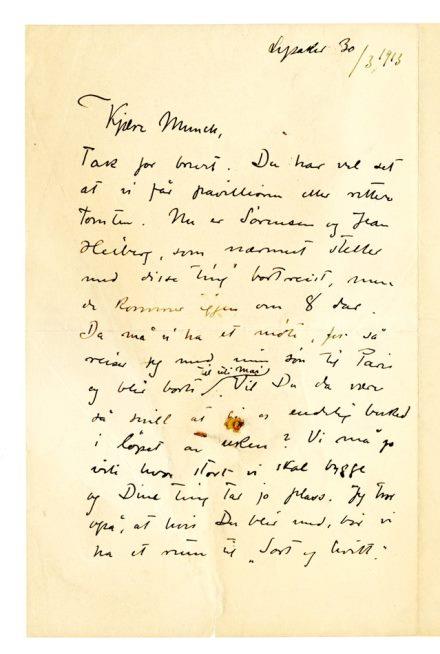 Lysaker 30/3, 1913
Kjære Munch,
Tak for brevet. Du har vel set
at vi får pavillionen eller rettere
tomten. Nu er Sørensen og Jean
Heiberg, som nærmest steller
med disse ting bortreist, men
de kommer igjen om 8 dar.
Da må vi ha et møte, for så
reiser jeg med min søn til Paris
og blir borte til ut i mai. Vil Du da være
så snill at gi os endelig besked
i løpet av uken? Vi må jo
vite hvor stort vi skal bygge
og Dine ting tar jo plass. Jeg tror
også, at hvis Du blir med, bør vi
ha et rum til "Sort og hvitt".